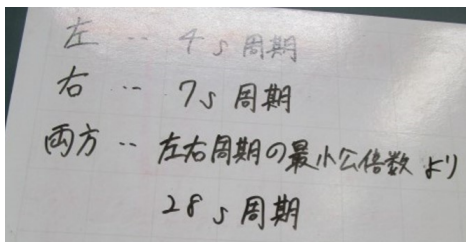 左 ‥ 4s周期
右 ‥ 7s周期
両方 ‥ 左右周期の最小公倍数より
28s周期